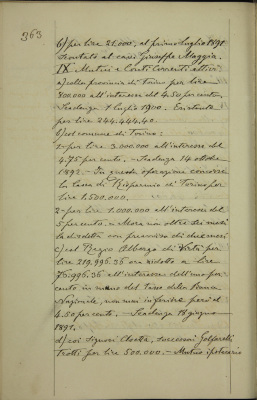 363
6) per lire 21.000, al primo Luglio 1891
scontato al cassi Giuseppe Maggia.
IX. Mutui e Conti Correnti attivi
a) colla provincia di Torino per lire
800.000 all'interesse del 4.50 per cento,
Scadenza 1 Luglio 1900. Esistente
per lire 244.444.40.
b) col comune di Torino:
1º per lire 3.000.000 all'interesse del
4.75 per cento. - Scadenza 14 ottobre
1892. - In questa operazione concorre
la Cassa di Risparmio di Torino per
lire 1.500.000.
2º per lire 1.000.000 all'interesse del
5 per cento. a Mora non oltre sei mesi
la disdetta con preavviso di due mesi
c) col Regio Albergo di Virtù per
lire 219.996.36 ora ridotto a lire
75.996.36 all'interesse dell'uno per
cento in meno del tasso della Banca
Nazionale, non mai inferiore però al
4.50 per cento. - Scadenza 18 giugno
1891.
d) coi Signori successori
per lire 500.000. - Mutuo ipotecario